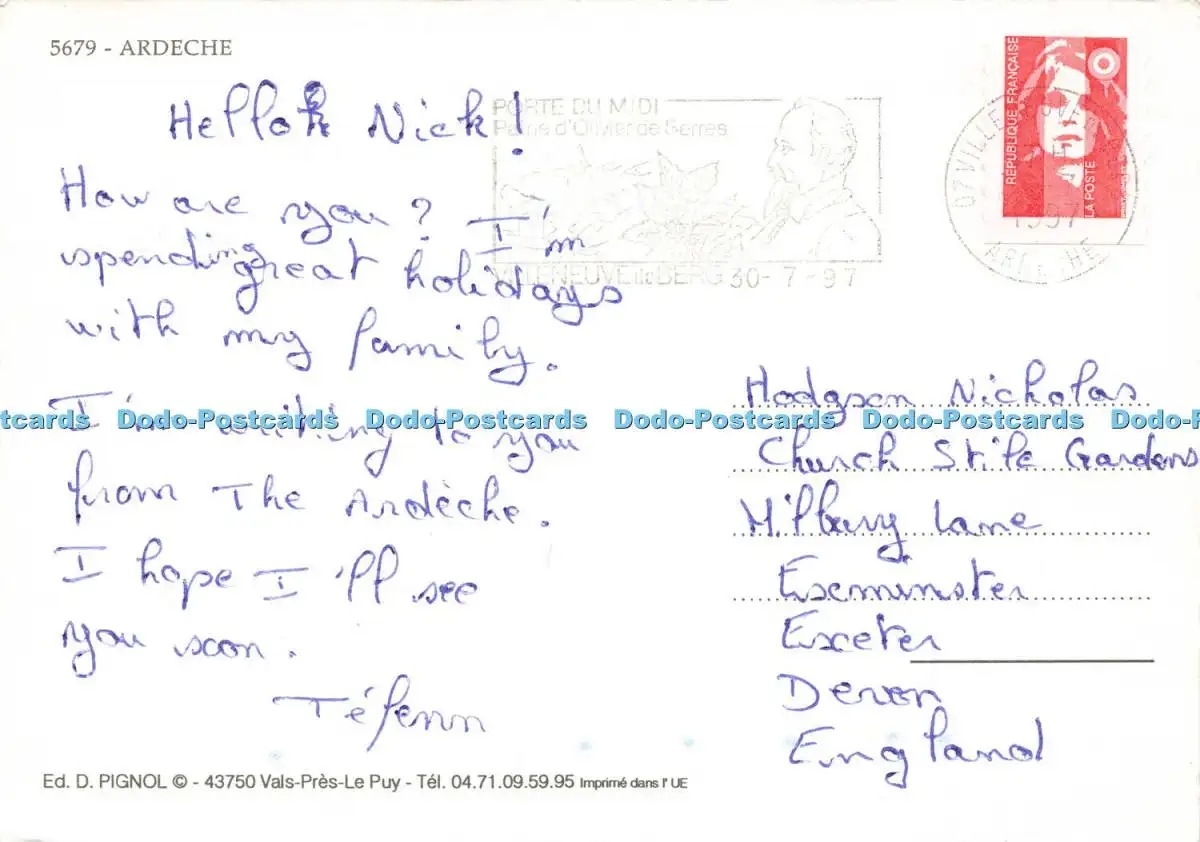 5679 - ARDECHE
Hello Nick!
How are you? I'm
spending great holidays
with my family.
I'm writing to you
from The Ardèche.
I hope I'll see
you soon.
Téfenn
PORTE DU MIDI
Patrie d'Olivier de Serres
VILLENEUVE de BERG 30-7-97
REPUBLIQUE FRANÇAISE
LA POSTE
07 VILLENEUVE
1997
ARDECHE
Hodgson Nicholas
Church Stile Gardens
Milbury Lane
Exeminster
Exeter
Devon
England
Ed. D. PIGNOL © - 43750 Vals-Près-Le Puy - Tél. 04.71.09.59.95 Imprimé dans l'UE
Dodo-Postcards Dodo-Postcards Dodo-Postcards Dodo-Postcards